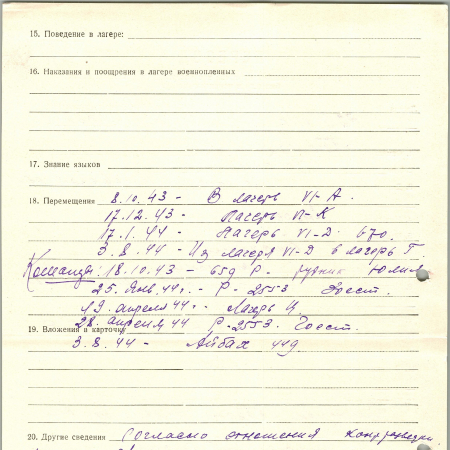 15. Поведение в лагере:
16. Наказания и поощрения в лагере военнопленных
17. Знание языков
18. Перемещения 8.10.43 - В лагерь VI-A.
17.12.43 - Лагерь VI-K
17.1.44 - Лагерь VI-D. 670.
3.8.44 - Из лагеря VI-D в лагерь Г.
Команды: 18.10.43 - 659 Р. рудник
25. Янв. 44 г. - Р-2553
19. апреля 44 г. - Лагерь
28. апреля 44 Р-2553.
19. Вложения в карточку
3.8.44 - Айбах 449
20. Другие сведения Согласно отношения контрразведки